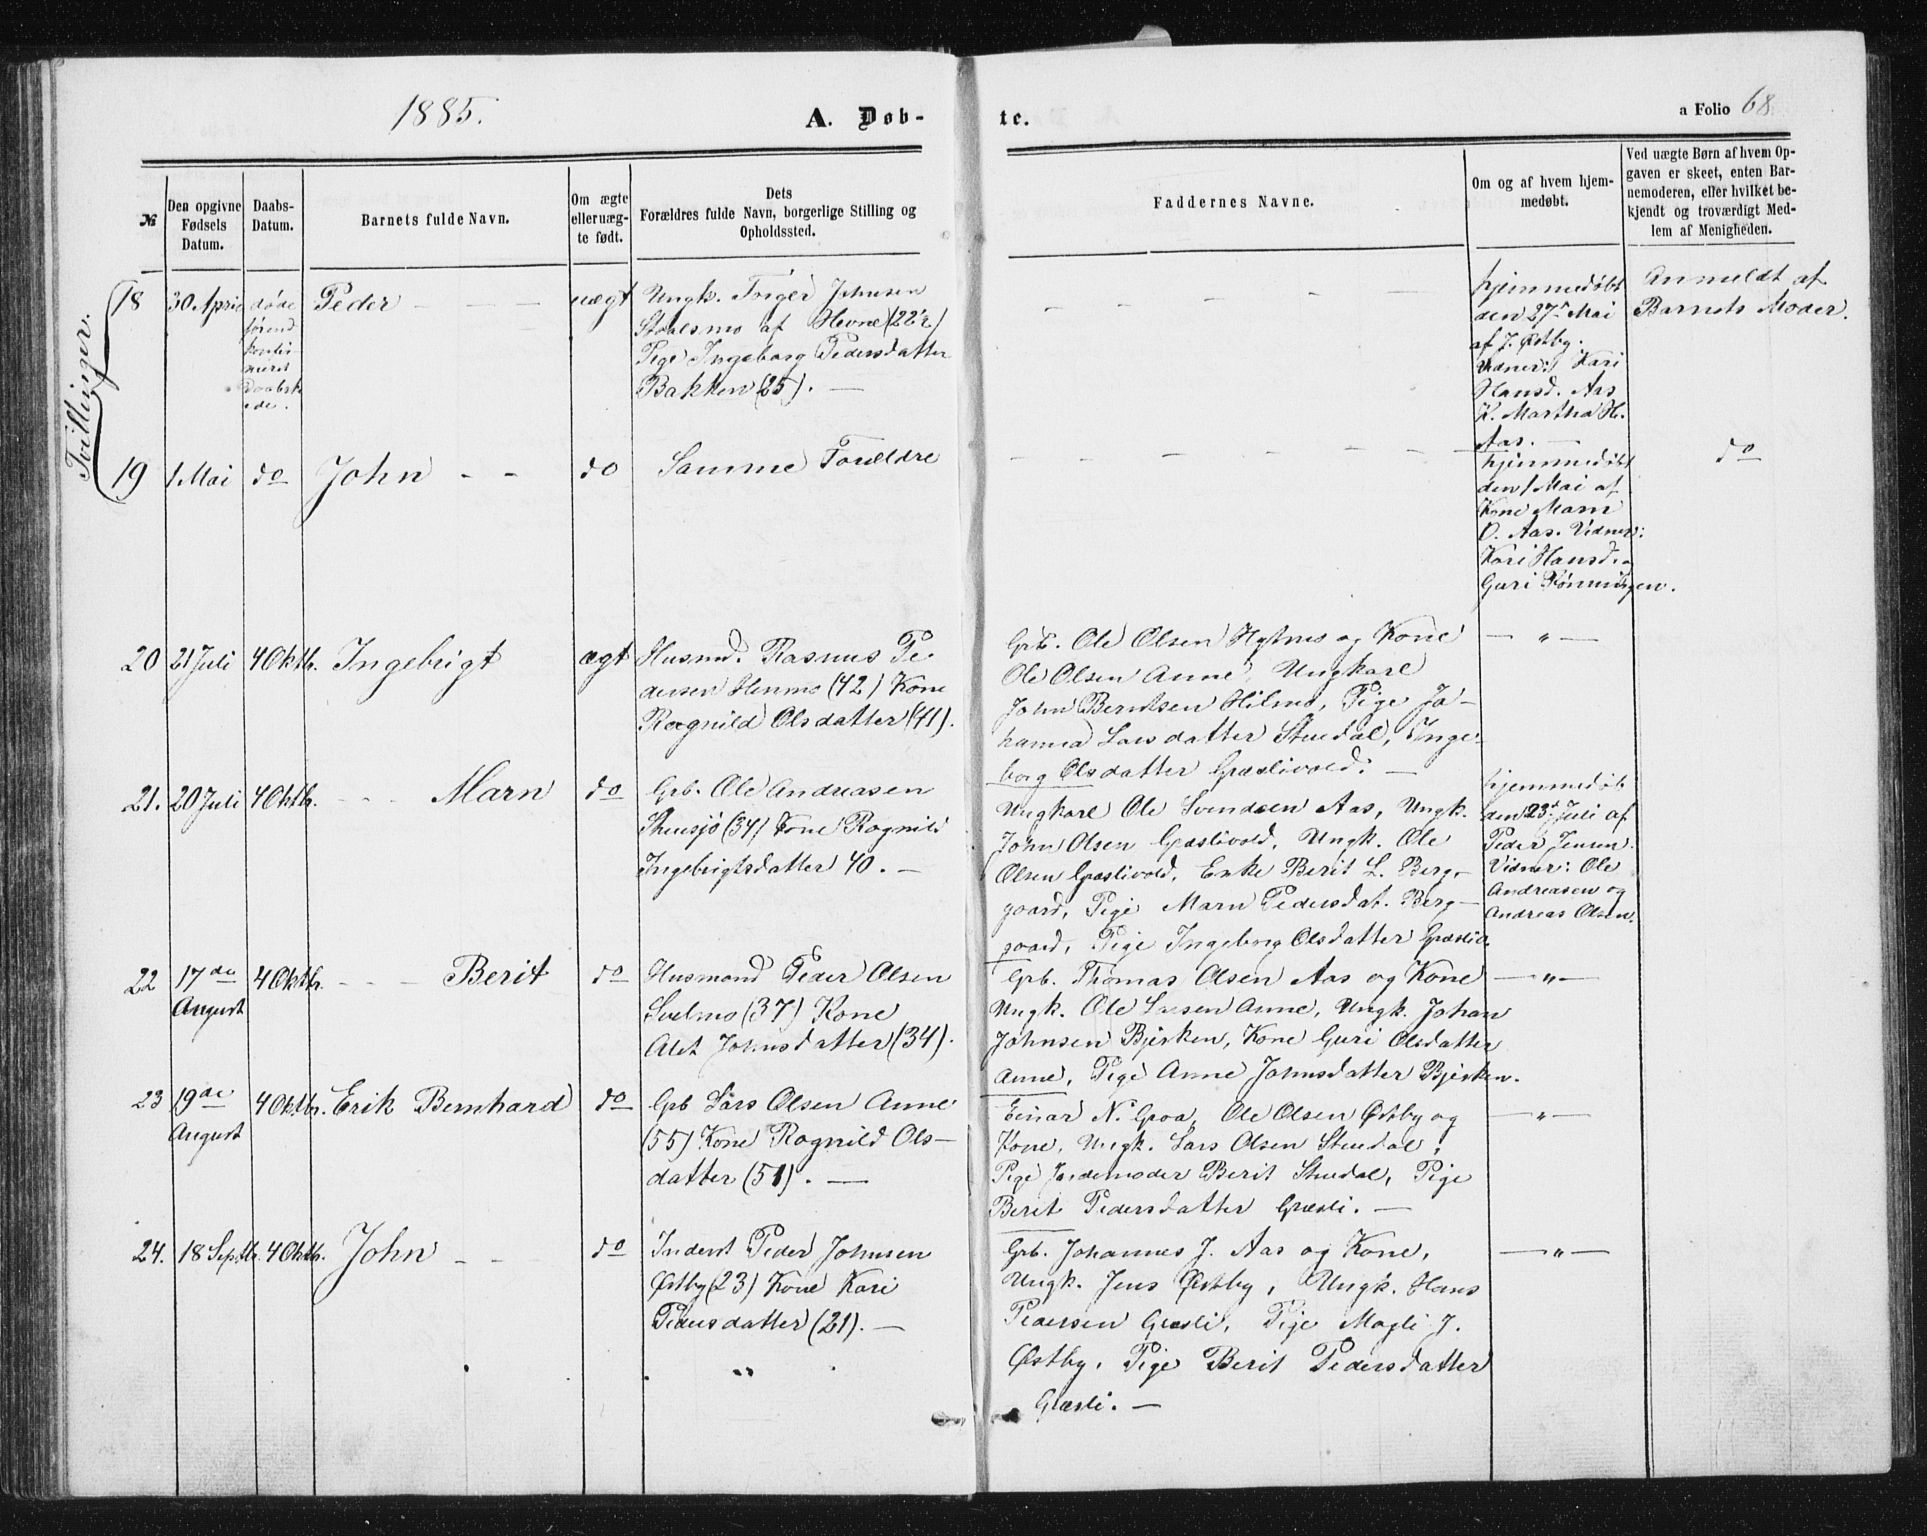 1885.
A. Døb-
te.
a Folio 68
№
Den opgivne Fødsels Datum.
Daabs-Datum.
Barnets fulde Navn.
Om ægte eller uæg-te født.
Dets
Forældres fulde Navn, borgerlige Stilling og
Opholdssted.
Faddernes Navne.
Om og af hvem hjem-
medøbt.
Ved uægte Børn af hvem Op-
gaven er skeet, enten Bar-
nemoderen, eller hvilket be-
kjendt og troværdigt Med-
lem af Menigheden.
Tvillinger.
18 30 April døde Peder uægt
Ungk. Johnsen
af Hevne (22 )
Pige Ingeborg Pedersdatter
Bakken (25). —
hjemmedøbt
den 27 Mai
af J. Østby.
Vidner: Kari
Hansd. Aas
K. Martha H.
Aas. —
Anmeldt af
Barnets Moder.
19 1 Mai do John - - do Samme Forældre
hjemmedøbt
den 1 Mai af
Kone Marn
O. Aas. Vidner:
Kari Hansd. og
Guri
do
20 21 Juli 4 Oktb. Ingebrigt ægt
Husmd. Rasmus Pe-
dersen Henmo (42) Kone
Ragnild Olsdatter (41).
Grb. Ole Olsen og Kone
Ole Olsen Anne, Ungkarl
John Berntsen Hilmo, Pige Jo-
hanna Larsdatter Stuedal, Inge-
borg Olsdatter Græslivold. —
— " —
21. 20 Juli 4 Oktb. - - - Marn do
Grb. Ole Andreasen
Stensjø (34) Kone Ragnild
Ingebrigtsdatter 40. —
Ungkarl Ole Svendsen Aas, Ungk.
John Olsen Græslivold, Ungk. Ole
Olsen Græslivold, Enke Berit L. Berg-
gaard, Pige Marn Pedersdat. Berg-
gaard, Pige Ingeborg Olsdatter Græsli.
hjemmedøb
den 23 Juli af
Peder Jensen
Vidner: Ole
Andreasen og
Andreas Olsen.
22 17de August 4 Oktb. - - - Berit do
Husmand Peder Olsen
Svelmo (37) Kone
Alet Johnsdatter (34).
Grb. Thomas Olsen Aas og Kone
Ungk. Ole Larsen Anne, Ungk. Johan
Johnsen Bjerken, Kone Guri Olsdatter
Anne, Pige Anne Johnsdatter Bjerken.
— " —
23 19de August 4 Oktbr. Erik Bernhard do
Grb Lars Olsen Anne
(55) Kone Ragnild Ols-
datter (51). —
Einar N. Groa, Ole Olsen Østby og
Kone, Ungk. Lars Olsen Stuedal,
Pige Jordemoder Berit Stuedal, Pige
Berit Pedersdatter Græsli. —
— " —
24. 18 Septbr. 4 Oktb. John - - do
Inderst Peder Johnsen
Østby (23) Kone Kari
Pedersdatter (21). —
"
Grb. Johannes J. Aas og Kone,
Ungk. Jens Østby, Ungk. Hans
Pedersen Græsli, Pige Magli J.
Østby, Pige Berit Pedersdatter
Græsli. —
— " —